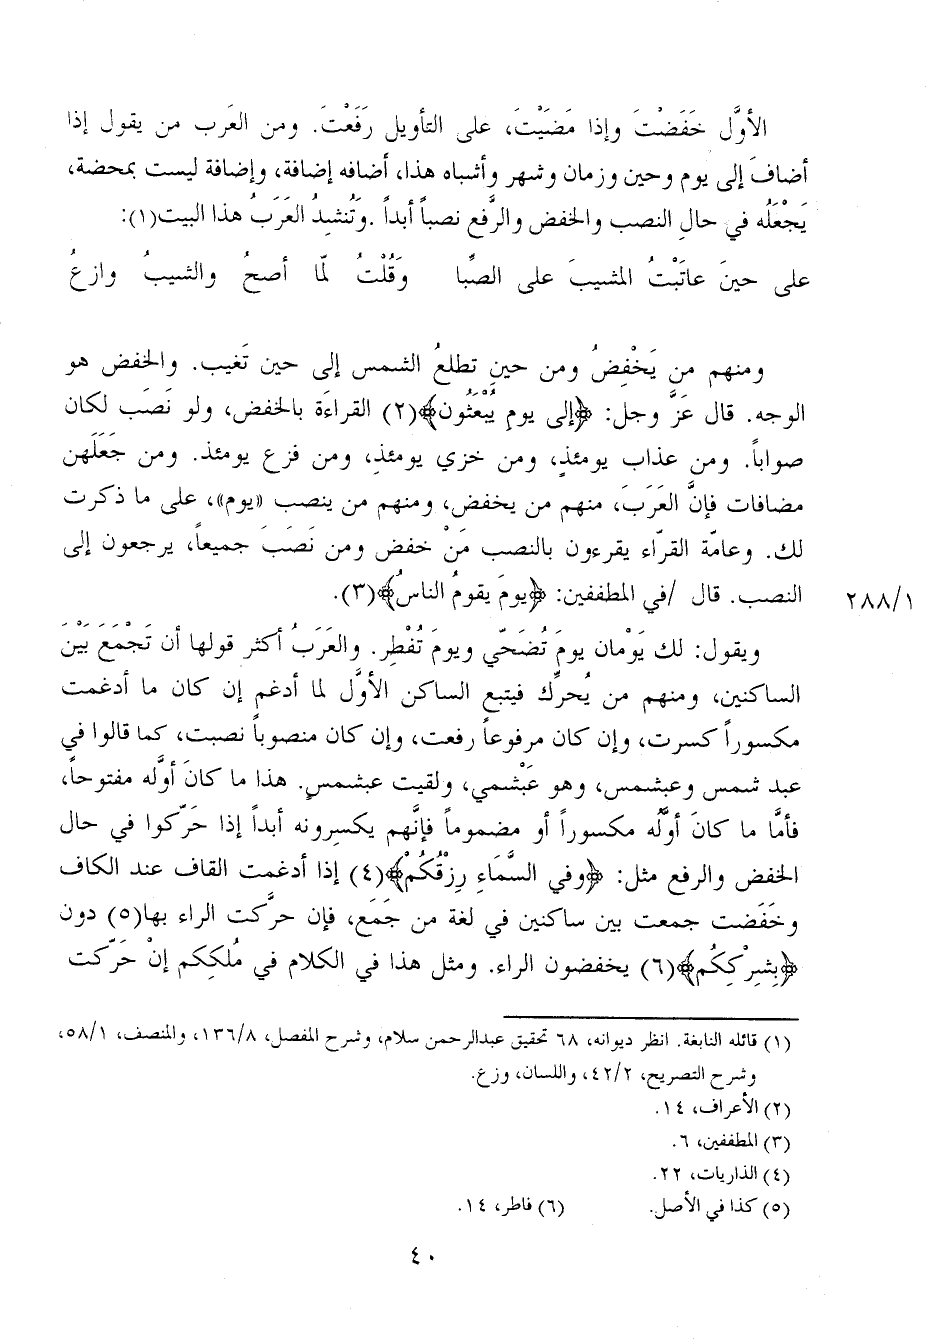 الأوَّل خَفَضْتَ وإذا مَضَيْتَ، على التأويل رَفَعْتَ. ومن العَرب من يقول إذا
أضافَ إلى يوم وحين وزمان وشهر وأشباه هذا، أضافه إضافة، وإضافة ليست بمحضة،
يَجْعَلُه في حالِ النصب والخفض والرَّفع نصباً أبداً .وتُنشِدُ العَرَبُ هذا البيت(١):
على حينَ عاتَبْتُ المشيبَ على الصِّبا وَقُلْتُ لمّا أصحُ والشيبُ وازعُ
ومنهم من يَخْفِضُ ومن حينِ تطلعُ الشمس إلى حين تَغيب. والخفض هو
الوجه. قال عَزَّ وجل: ﴿إلى يومِ يُبْعَثُون﴾(٢) القراءَة بالخفض، ولو نَصَب لكان
صواباً. ومن عذاب يومئذٍ، ومن خزي يومئذِ، ومن فزع يومئذ. ومن جَعَلَهن
مضافات فإنَّ العَرَبَ، منهم من يخفض، ومنهم من ينصب «يوم»، على ما ذكرت
لك. وعامّة القرّاء يقرءون بالنصب مَنْ خفض ومن نَصَبَ جميعاً، يرجعون إلى
النصب. قال /في المطففين: ﴿يومَ يقومُ الناسُ﴾(٣).
٢٨٨/١
ويقول: لك يَوْمان يومَ تُضَحّي ويومَ تُفْطِر. والعَرَبُ أكثر قولها أن تَجْمَعَ بَيْنَ
الساكنين، ومنهم من يُحرِّك فيتبع الساكن الأوَّل لما أدغم إن كان ما أدغمت
مكسوراً كسرت، وإن كان مرفوعاً رفعت، وإن كان منصوباً نصبت، كما قالوا في
عبد شمس وعبشمس، وهو عَبْشمي، ولقيت عبشمسٍ. هذا ما كانَ أوَّله مفتوحاً،
فأمَّا ما كانَ أوَّله مكسوراً أو مضموماً فإنَّهم يكسرونه أبداً إذا حَرّكوا في حال
الخفض والرفع مثل: ﴿وفي السَّمَاءِ رِزْقُكُمْ﴾(٤) إذا أدغمت القاف عند الكاف
وخَفَضت جمعت بين ساكنين في لغة من جَمَع، فإن حرَّكت الراء بها(٥) دون
﴿بِشِرْكِكُم﴾(٦) يخفضون الراء. ومثل هذا في الكلام في مُلكِكم إنْ حَرّكت
(١) قائله النابغة. انظر ديوانه، ٦٨ تحقيق عبدالرحمن سلام، وشرح المفصل، ١٣٦/٨، والمنصف، ٥٨/١،
وشرح التصريح، ٤٢/٢، واللسان، وزع.
(٢) الأعراف، ١٤.
(٣) المطففين، ٦.
(٤) الذاريات، ٢٢.
(٥) كذا في الأصل. (٦) فاطر، ١٤.
٤٠